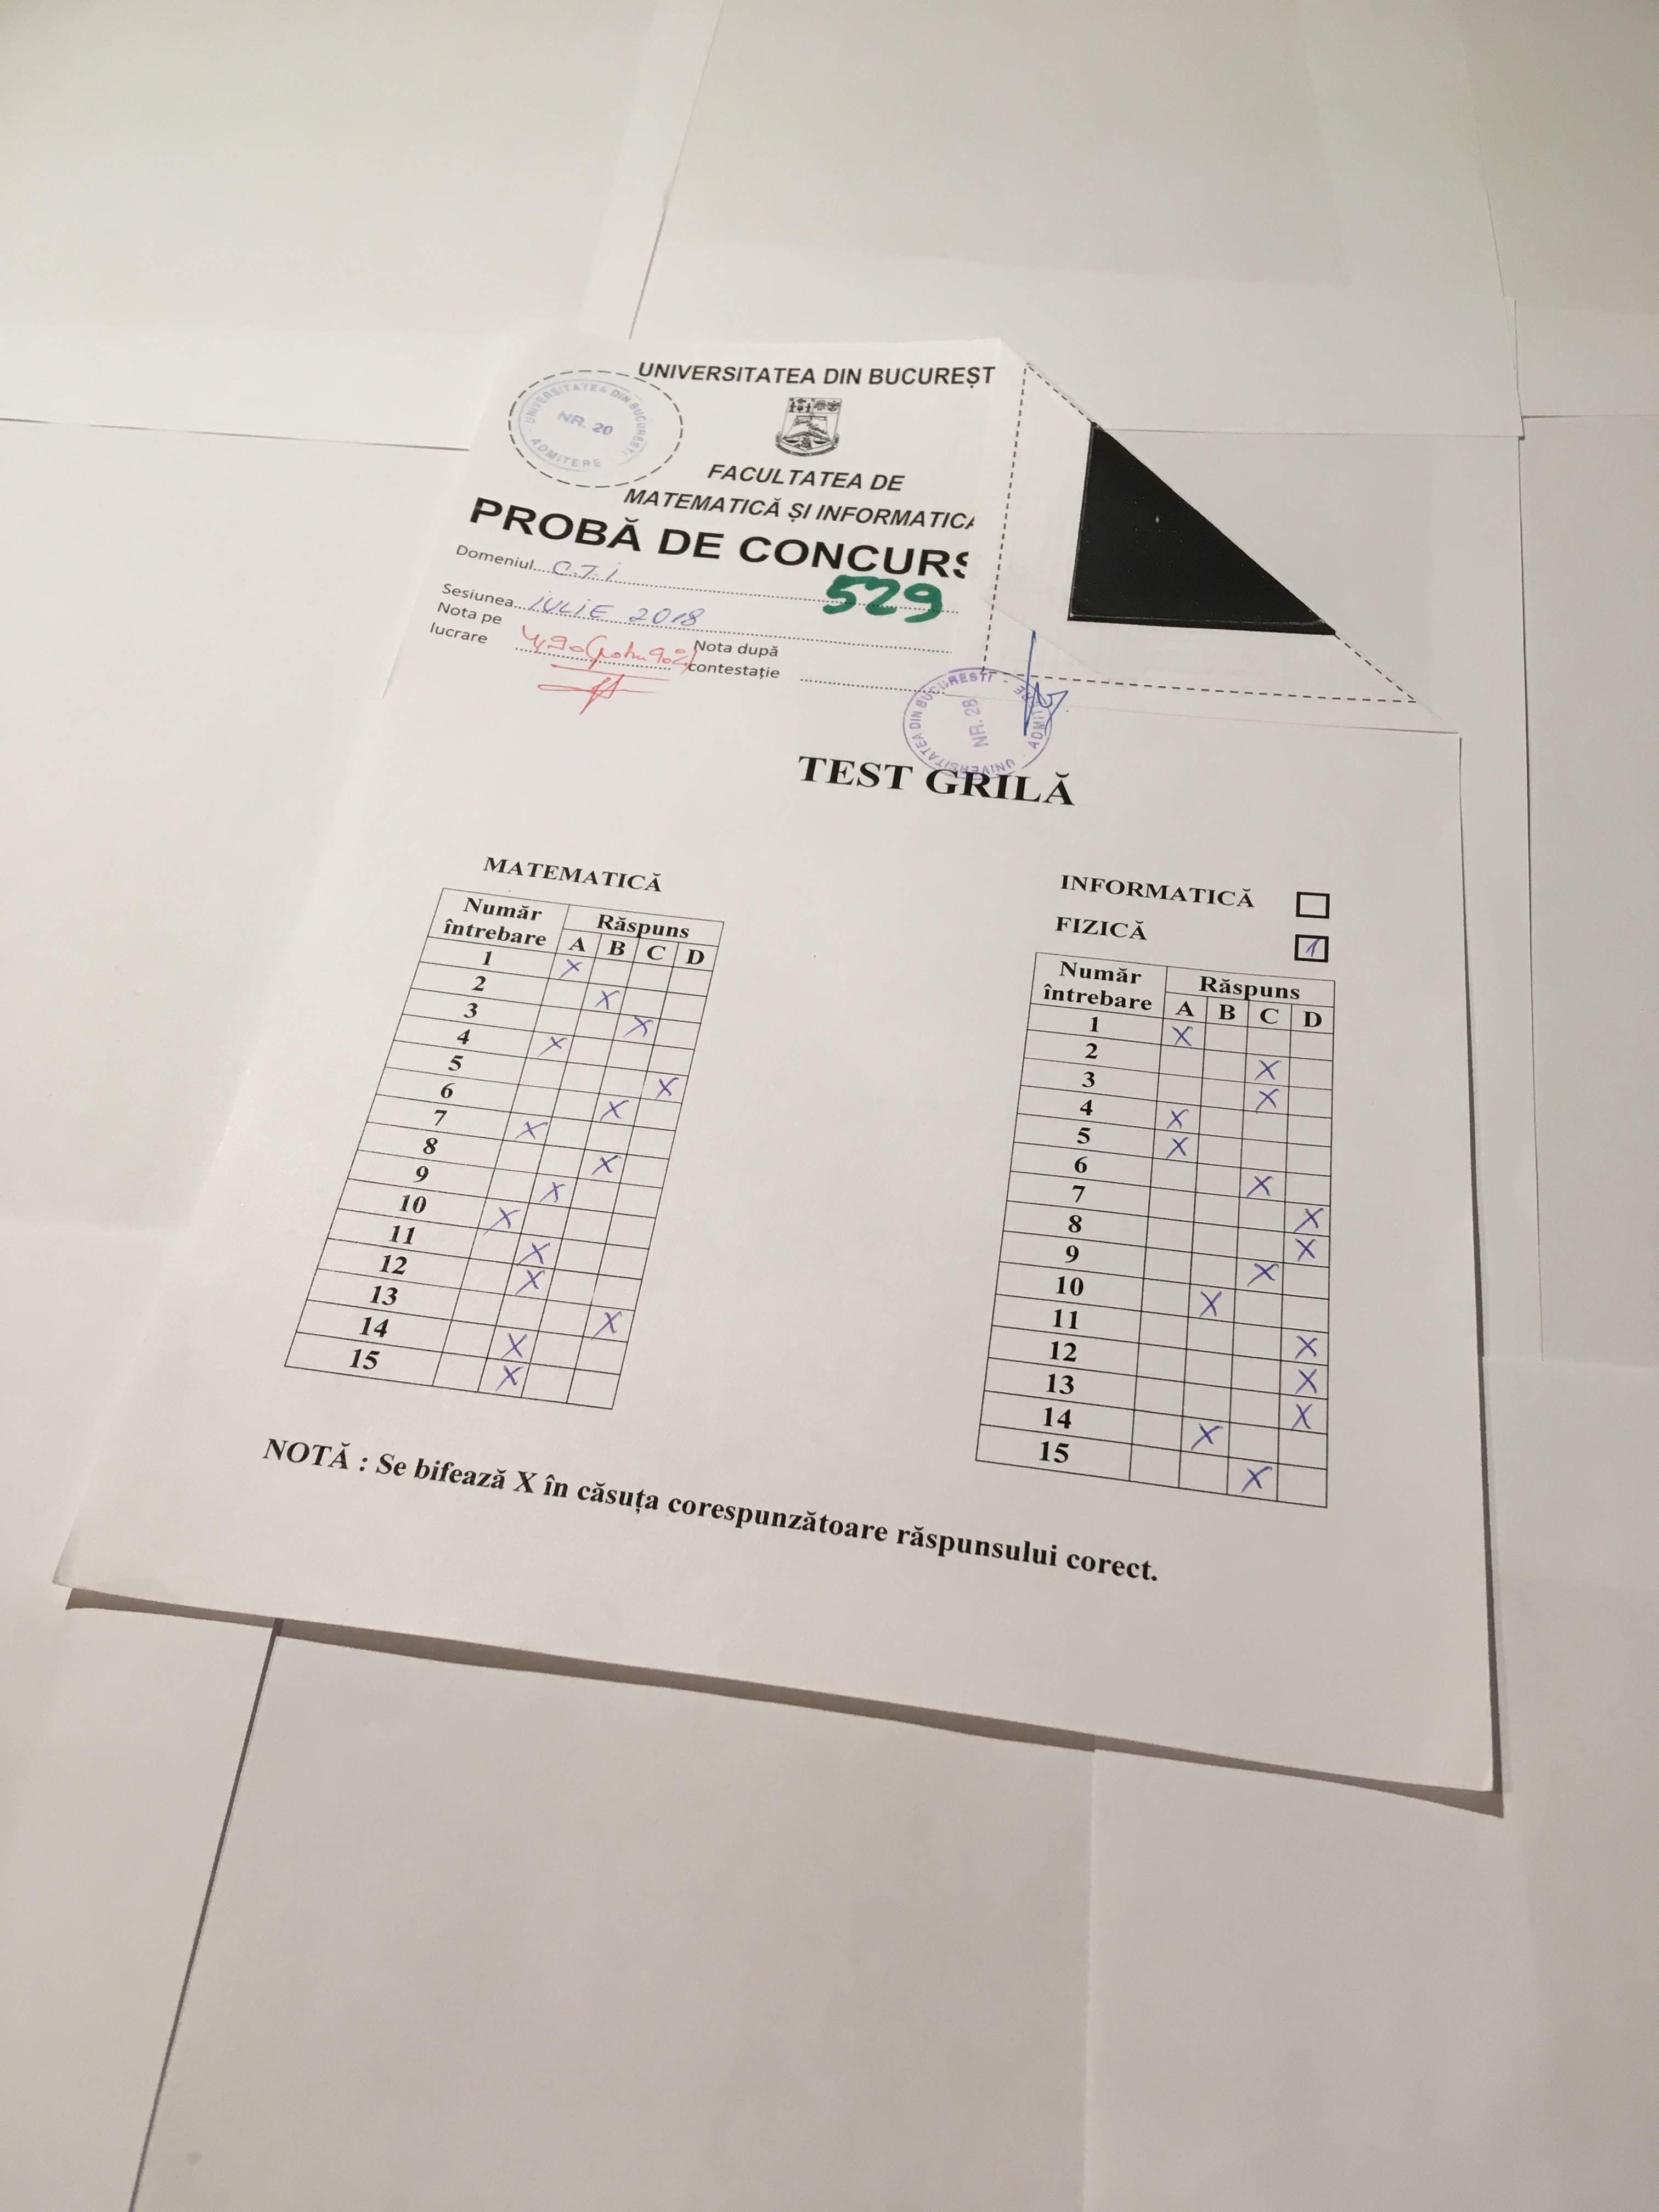 UNIVERSITATEA DIN BUCUREȘT
UNIVERSITATEA DIN BUCUREȘTI
NR. 20
ADMITERE
FACULTATEA DE
MATEMATICĂ ȘI INFORMATICA
PROBĂ DE CONCURS
Domeniul C.T.I
529
Sesiunea IULIE 2018
Nota pe lucrare 4,90
Nota după contestație
UNIVERSITATEA DIN BUCUREȘTI - ADMITERE
NR. 28
TEST GRILĂ
MATEMATICĂ
Număr întrebare Răspuns
A B C D
1 X
2 X
3 X
4 X
5 X
6 X
7 X
8 X
9 X
10 X
11 X
12 X
13 X
14 X
15 X
INFORMATICĂ
FIZICĂ 1
Număr întrebare Răspuns
A B C D
1 X
2 X
3 X
4 X
5 X
6 X
7 X
8 X
9 X
10 X
11 X
12 X
13 X
14 X
15 X
NOTĂ : Se bifează X în căsuța corespunzătoare răspunsului corect.